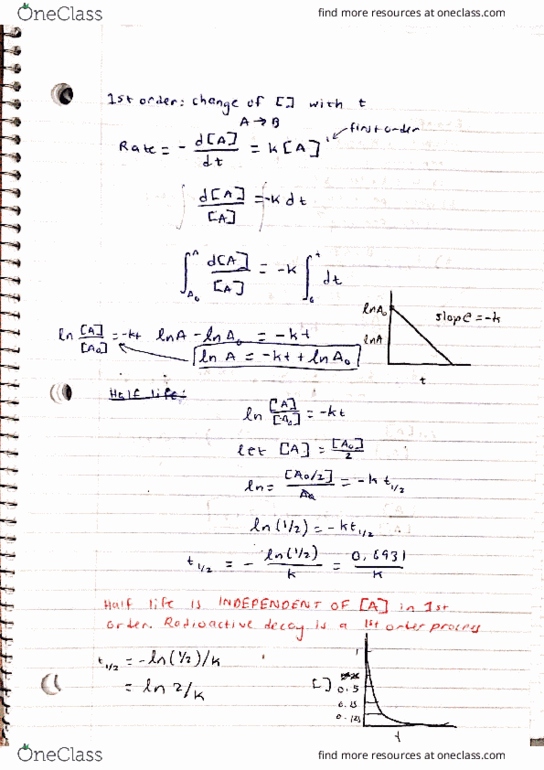 OneClass
find more resources at oneclass.com
1st order: change of [] with t
A → B
Rate = - d[A]/dt = k[A]' first order
∫ d[A]/[A] = ∫ -k dt
∫ A A₀ d[A]/[A] = -k ∫ t dt
ln [A]/[A₀] = -kt lnA - lnA₀ = -kt
ln A = -kt + ln A₀
lnA₀
lnA
slope = -k
t
Half life:
ln [A]/[A₀] = -kt
let [A] = [A₀]/2
ln = [A₀/2]/A₀ = -k t1/2
ln(1/2) = -kt1/2
t1/2 = - ln(1/2)/k = 0,6931/k
Half life is INDEPENDENT OF [A] in 1st
order. Radioactive decay is a 1st order process
t1/2 = -ln(1/2)/k
= ln 2/k
[]
1
0.5
0.25
0.125
t
OneClass
find more resources at oneclass.com